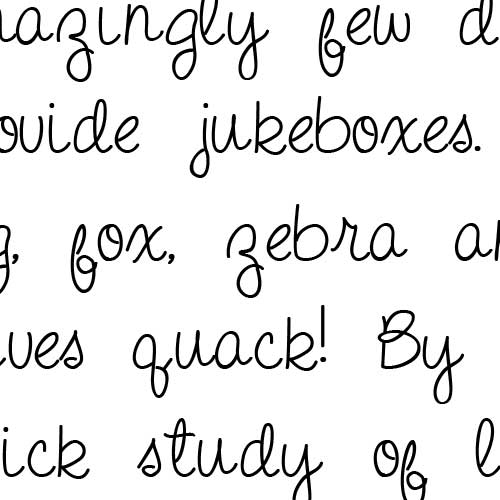 azingly few d
ovide jukeboxes.
g, fox, zebra a
ves quack! By
ick study of l